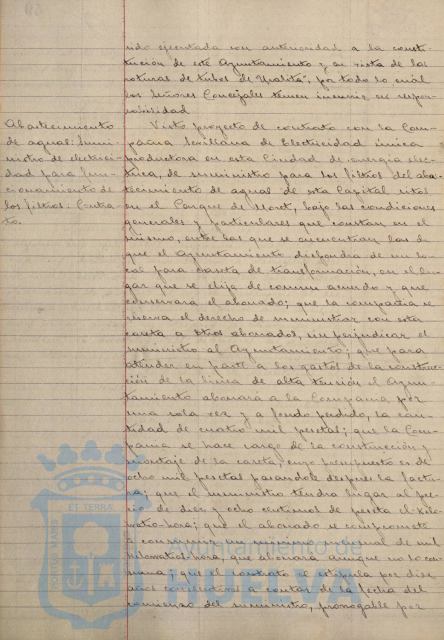 sido ejecutada con anterioridad a la consti-
tución de este Ayuntamiento y en vista de las
roturas de tubos de Uralita, por todo lo cual
los Señores Concejales temen incurrir en respon-
sabilidad
Abastecimiento
de aguas: Sumi-
nistro de electrici-
dad para fun-
cionamiento de
los filtros: Contra-
to.
Visto proyecto de contrato con la Com-
pañia Sevillana de Electricidad única
productora en esta Ciudad de energia eléc-
trica, de suministro para los filtros del abas-
tecimiento de aguas de esta Capital sitos
en el Parque de Moret, bajo las condiciones
generales y particulares que constan en el
mismo, entre las que se encuentran las de
que el Ayuntamiento dispondra de un lo-
cal para caseta de transformación, en el lu-
gar que se elija de comun acuerdo y que
conservara el abonado; que la compañia se
reserva el derecho de suministrar con esta
caseta a otros abonados, sin perjudicar el
suministro al Ayuntamiento; que para
atender en parte a los gastos de la construc-
ción de la linea de alta tensión el Ayun-
tamiento abonará a la Compañia por
una sola vez y a fondo perdido, la can-
tidad de cuatro mil pesetas; que la Com-
pañia se hace cargo de la construcción y
montaje de la caseta, cuyo presupuesto es de
ocho mil pesetas pasandole despues la factu-
ra; que el suministro tendra lugar al pre-
cio de diez y ocho centimos de peseta el kilo-
watio-hora; que el abonado se compromete
a consumir un minimo mensual de mil
kilowatios-hora, que abonará aunque no lo con-
suma; que el contrato se estipula por diez
años consecutivos a contar de la fecha del
comienzo del suministro, prorrogable por
Ayuntamiento de
HUELVA